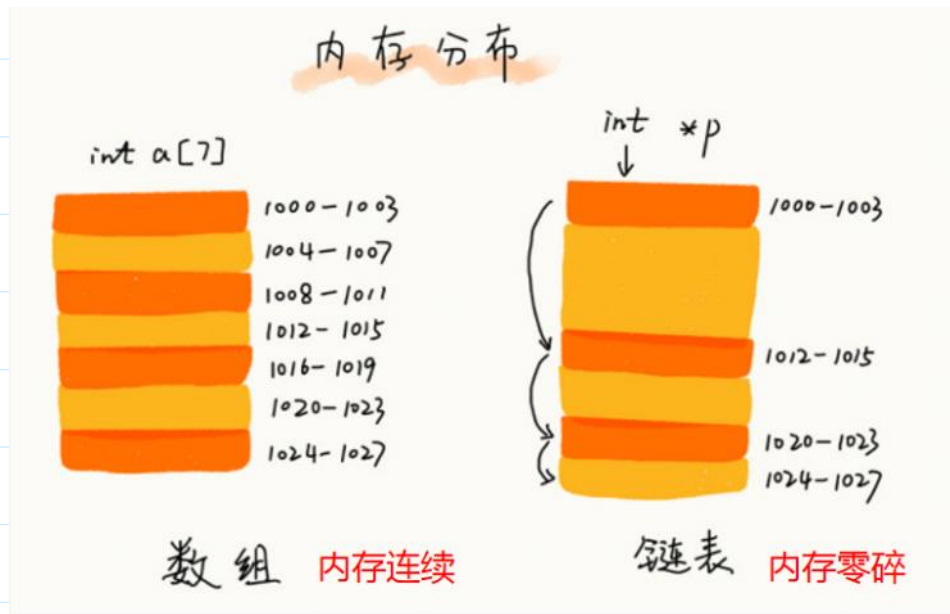 内存分布
int a[7]
1000-1003
1004-1007
1008-1011
1012-1015
1016-1019
1020-1023
1024-1027
数组 内存连续
int *p
1000-1003
1012-1015
1020-1023
1024-1027
链表 内存零碎